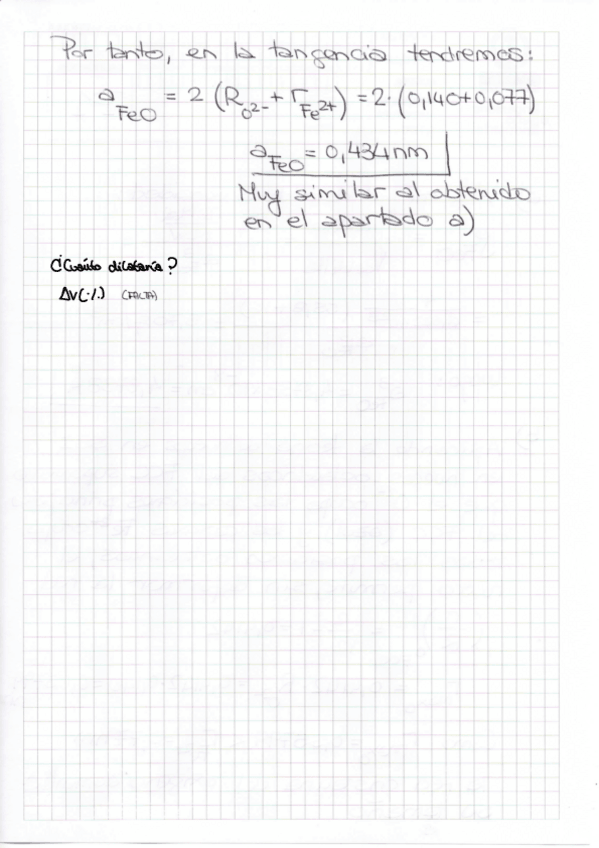 Por tanto, en la tangencia tendremos:
a FeO = 2 (R O2- + r Fe2+) = 2· (0,140+0,077)
a FeO = 0,434nm
Muy similar al obtenido
en el apartado a)
¿Cuánto dilataría?
ΔV(%) (FALTA)